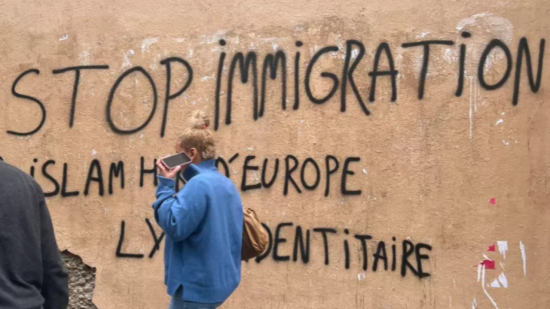 STOP immiGRATiON
iSLAM H D'EUROPE
LY DENTITAiRE